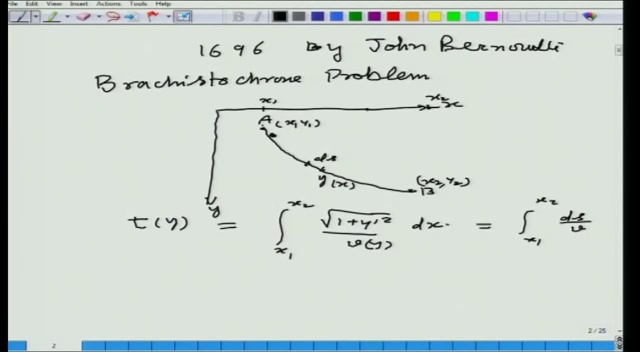 File Edit View Insert Actions Tools Help
1696 By John Bernoulli
Brachistochrone Problem
x₁ x₂ x
A (x₁, y₁)
ds
y(x) (x₂, y₂)
B
y
t(y) = ∫_{x₁}^{x₂} √(1+y'²) / v(y) dx. = ∫_{x₁}^{x₂} ds/v
2 / 25
2